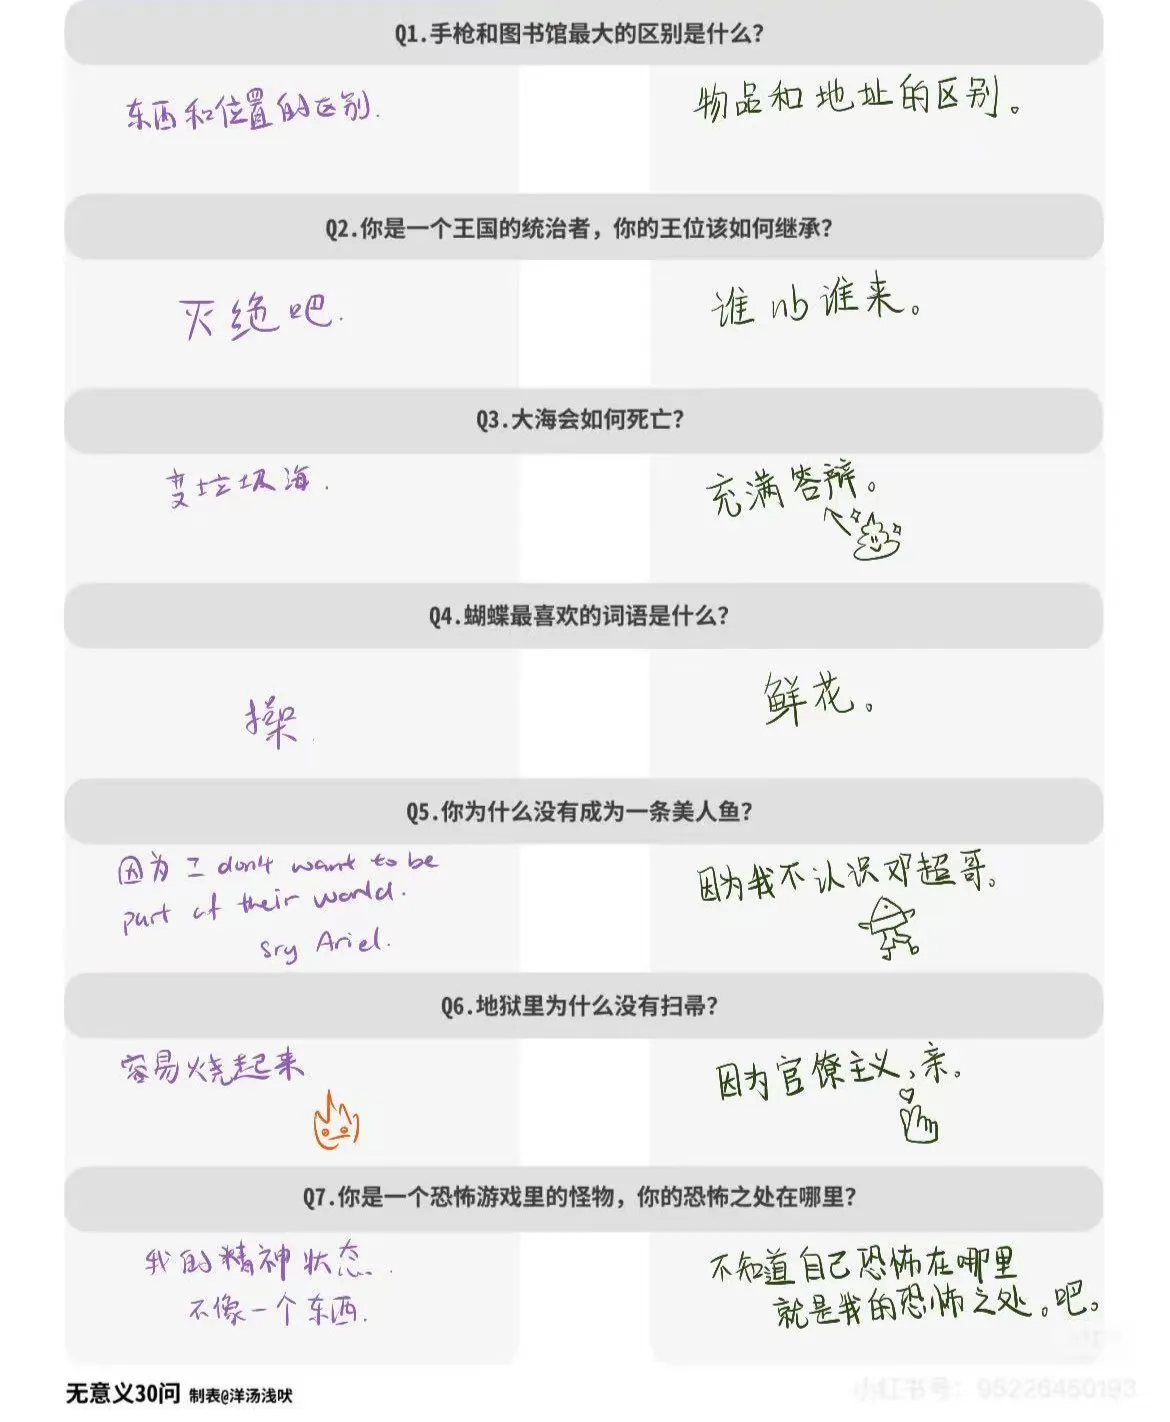 Q1.手枪和图书馆最大的区别是什么？
东西和位置的区别.
物品和地址的区别。
Q2.你是一个王国的统治者，你的王位该如何继承？
灭绝吧.
谁nb谁来。
Q3.大海会如何死亡？
变垃圾海.
充满答辩。
Q4.蝴蝶最喜欢的词语是什么？
操.
鲜花。
Q5.你为什么没有成为一条美人鱼？
因为 I don't want to be
part of their world.
sry Ariel.
因为我不认识邓超哥。
Q6.地狱里为什么没有扫帚？
容易烧起来
因为官僚主义,亲。
Q7.你是一个恐怖游戏里的怪物，你的恐怖之处在哪里？
我的精神状态.
不像一个东西.
不知道自己恐怖在哪里
就是我的恐怖之处。吧。
无意义30问 制表@洋汤浅吠
小红书号：95226450193